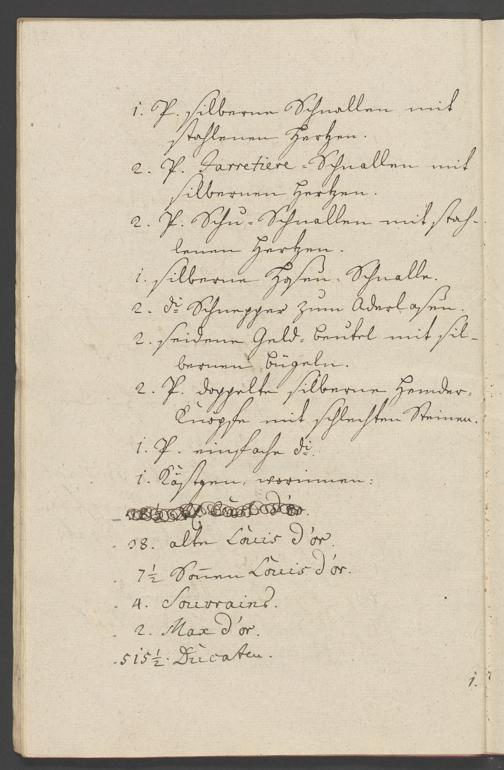 1. P. silberne Schnallen mit
stahlenen Hertzen.
2. P. Jarretiere-Schnallen mit
silbernen Hertzen.
2. P. Schu-Schnallen mit stah-
lenen Hertzen.
1. silberne Hosen-Schnalle.
2. do Schnepper zum Aderlasen.
2. seidene Geld-beutel mit sil-
bernen bügeln.
2. P. doppelte silberne Hemder-
Knöpfe mit schlechten Steinen.
1. P. einfache do.
1. Kästgen, worinnen:
38. alte Louis d'or.
7½ Soñen Louis d'or.
4. Souvrains.
2. Max d'or.
515½. Ducaten.
1.